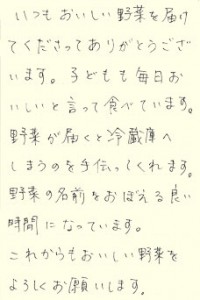 いつもおいしい野菜を届け
てくださってありがとうござ
います。子どもも毎日お
いしいと言って食べています。
野菜が届くと冷蔵庫へ
しまうのを手伝ってくれます。
野菜の名前をおぼえる良い
時間になっています。
これからもおいしい野菜を
よろしくお願いします。